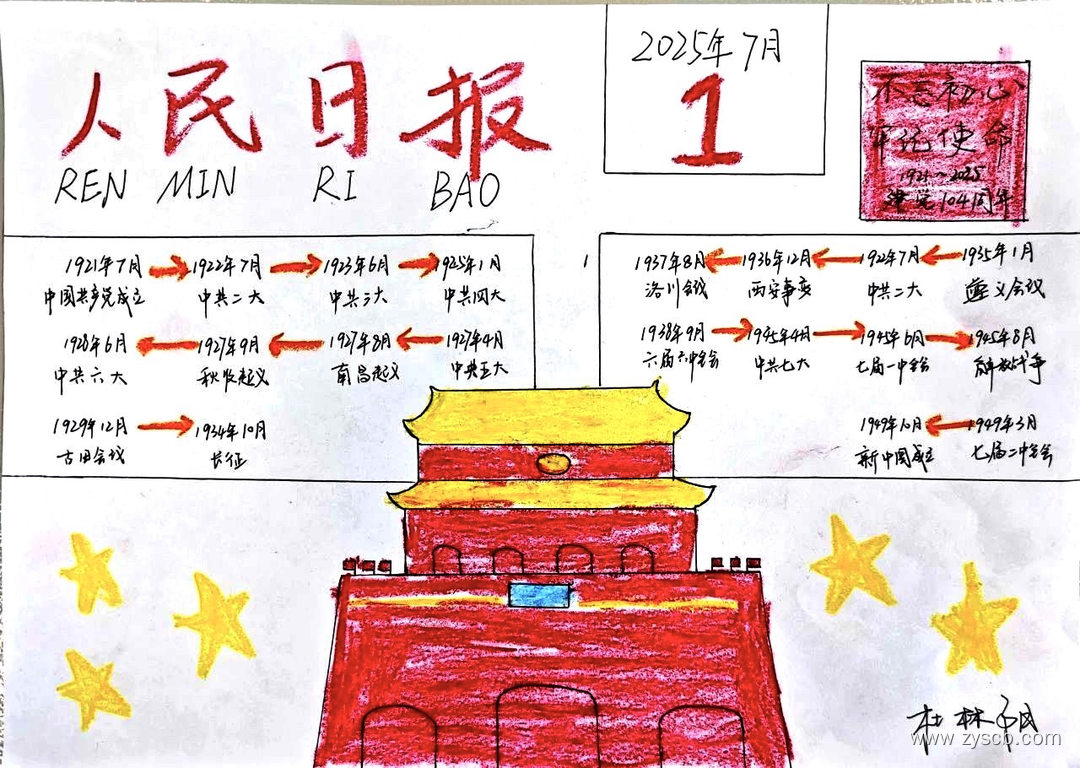 人民日报
REN MIN RI BAO
2025年7月
1
不忘初心
牢记使命
1921~2025
建党104周年
1921年7月 1922年7月 1923年6月 1925年1月
中国共产党成立 中共二大 中共三大 中共四大
1928年6月 1927年9月 1927年8月 1927年4月
中共六大 秋收起义 南昌起义 中共五大
1929年12月 1934年10月
古田会议 长征
1937年8月 1936年12月 1922年7月 1935年1月
洛川会议 西安事变 中共二大 遵义会议
1938年9月 1945年4月 1945年6月 1945年8月
六届六中全会 中共七大 七届一中全会 解放战争
1949年10月 1949年3月
新中国成立 七届二中全会
www.zyscb.com